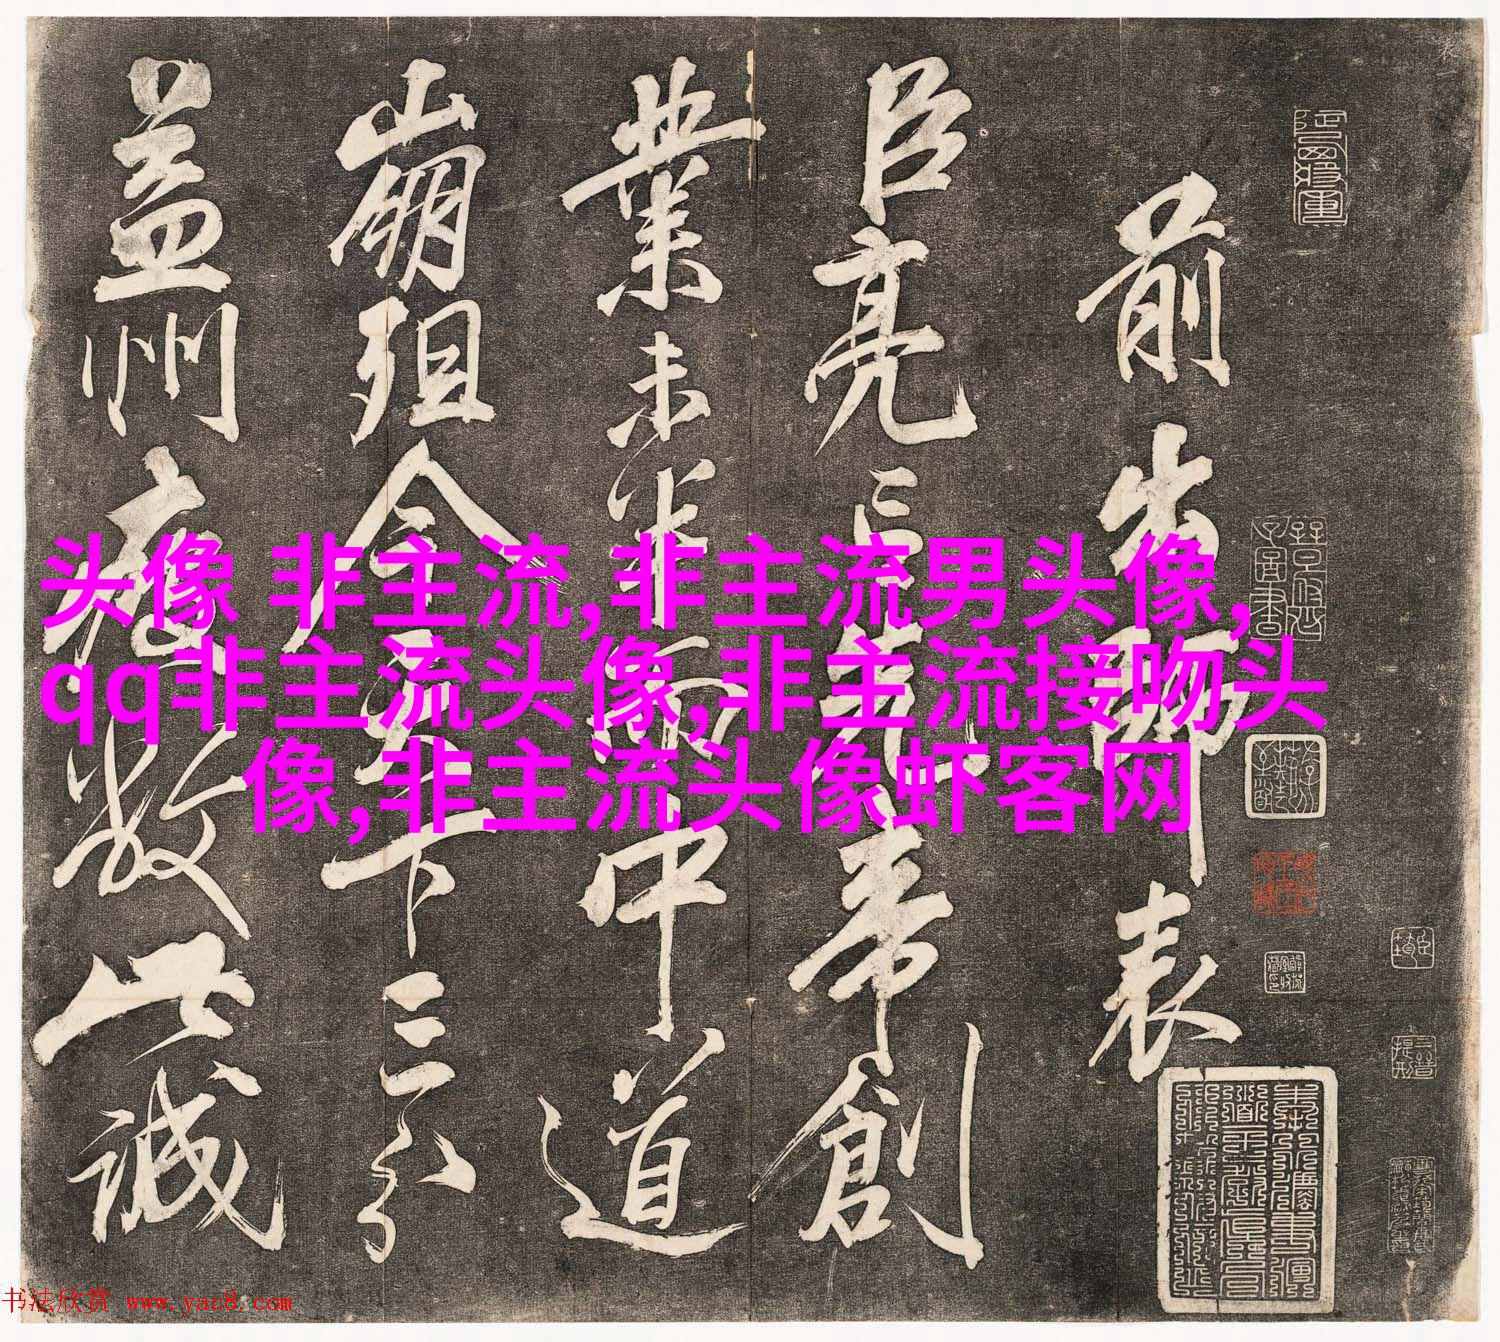 前出師表
臣亮言先帝創
業未半而中道
崩殂今天下三分
益州疲敝此誠
头像 非主流,非主流男头像,
qq非主流头像,非主流接吻头
像,非主流头像虾客网
书法欣赏 www.yac8.com